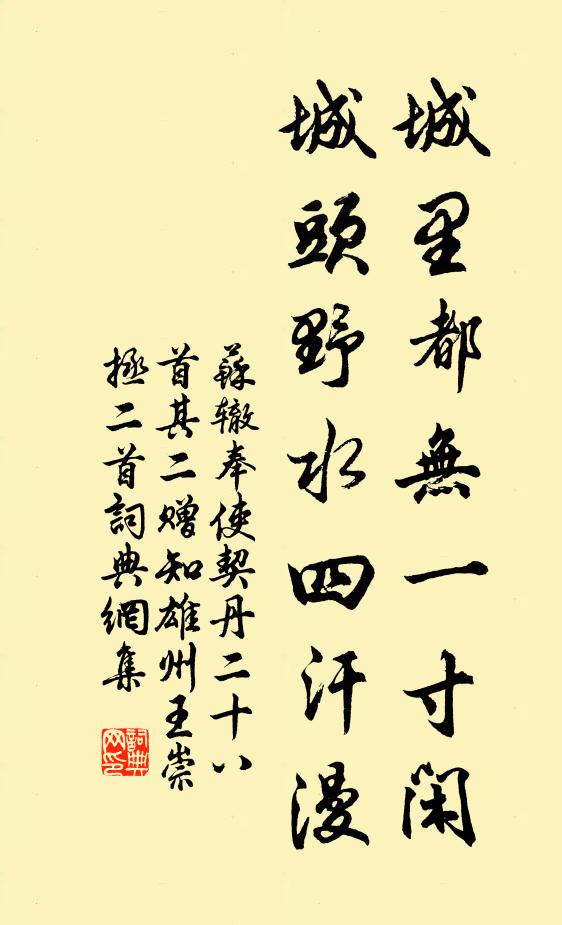 城里都無一寸閑
城頭野水四汗漫
蘇辙奉使契丹二十八
首其二赠知雄州王崇
拯二首詞典網集
詞典
网印